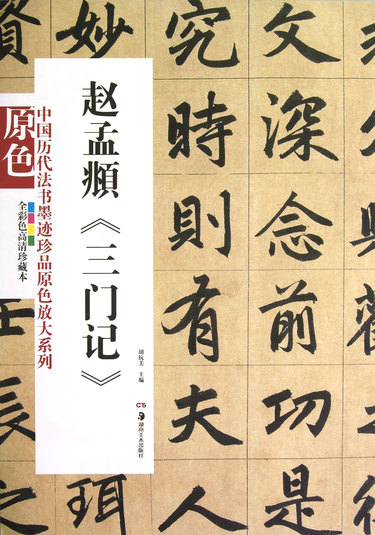 原色
中国历代法书墨迹珍品原色放大系列
全彩色高清珍藏本
赵孟頫《三门记》
胡抗美 主编
湖南美术出版社
文深念前功是
究時則有夫人
妙
珥
之